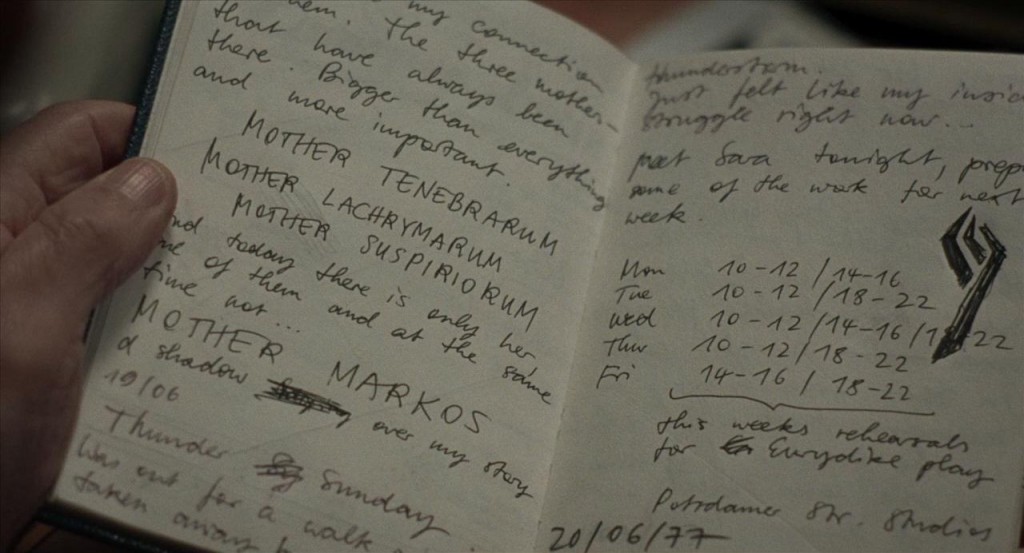 my connection
them. The three mother-
that have always been
there. Bigger than everything
and more important.
MOTHER TENEBRARUM
MOTHER LACHRYMARUM
MOTHER SUSPIRIORUM
and today there is only her
one of them and at the same
time not...
MOTHER MARKOS
a shadow over my story
19/06
Thunder Sunday
Was out for a walk
taken away
thunderstorm.
Just felt like my inside
struggle right now...
meet Sara tonight, prep
some of the work for next
week.
Mon 10-12 / 14-16
Tue 10-12 / 18-22
Wed 10-12 / 14-16 / 18-22
Thur 10-12 / 18-22
Fri 14-16 / 18-22
this weeks rehearsals
for Eurydike play
Potsdamer Str. Studios
20/06/77